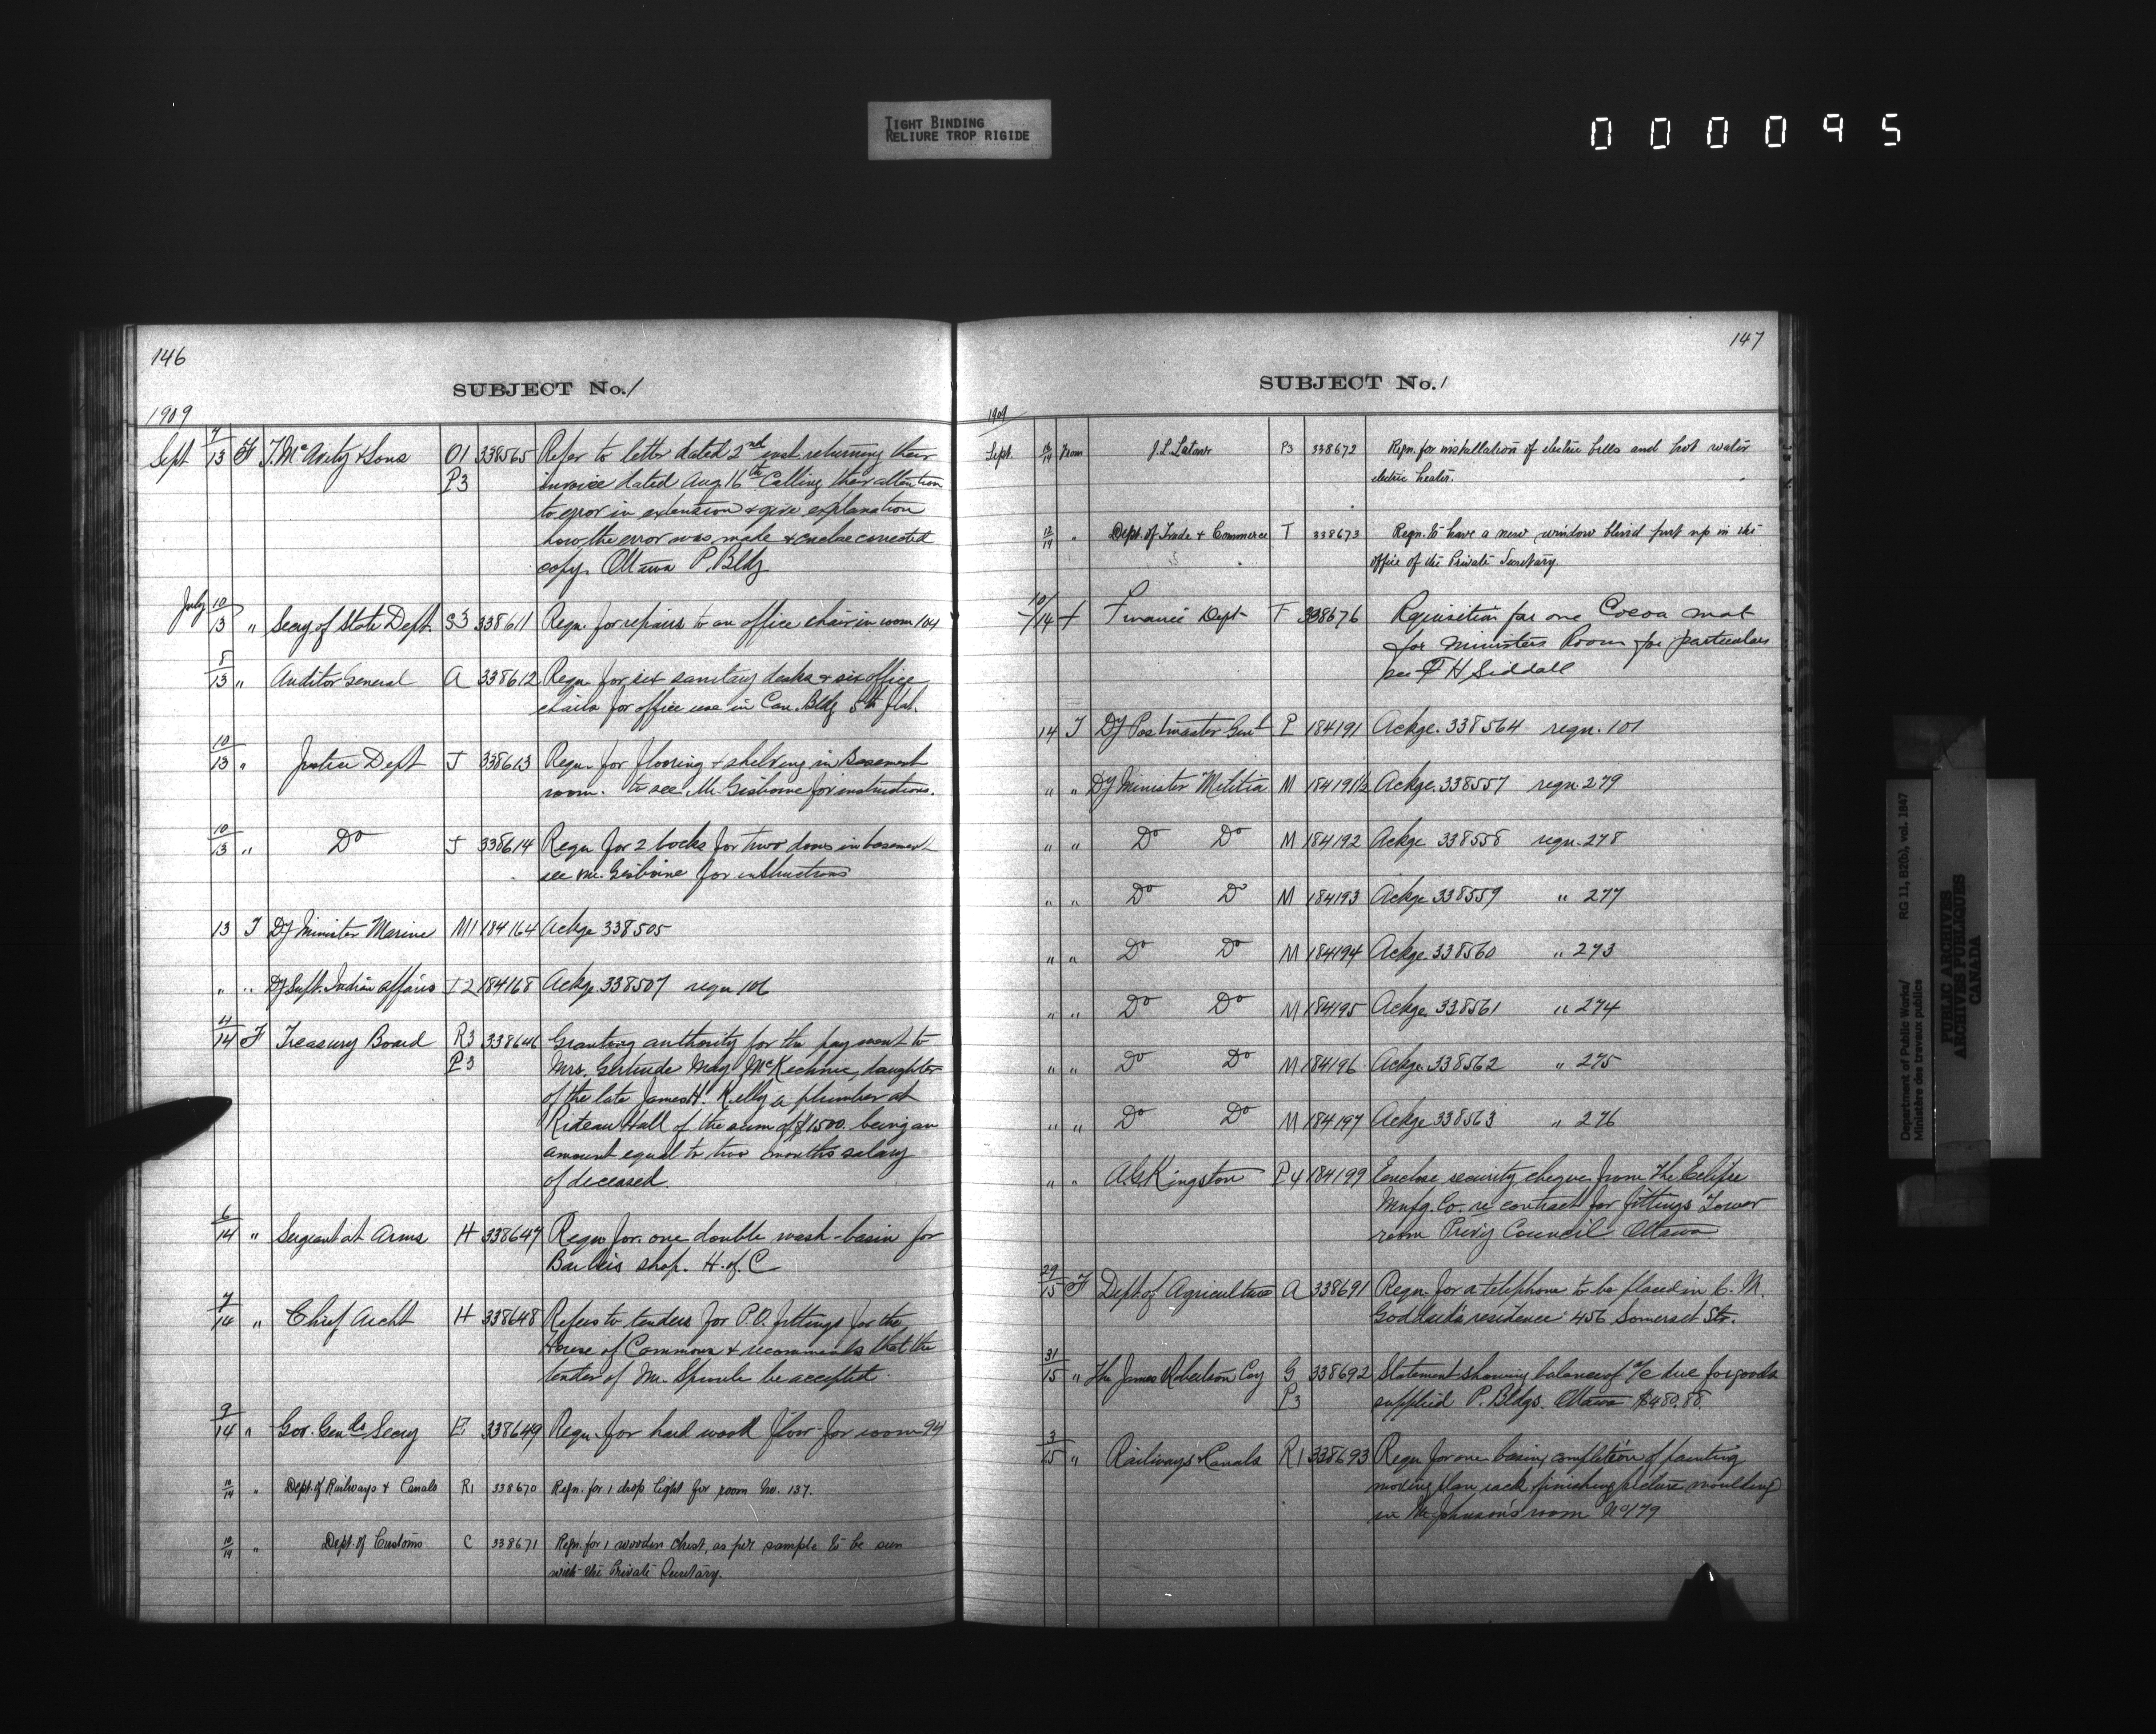 TIGHT BINDING
RELIURE TROP RIGIDE
000095
146
SUBJECT No. 1
1909
Sept 7/13 F T. McAvity & Sons O1 338565 Refer to letter dated 2nd inst. returning their
P3 invoice dated Aug. 16th Calling their attention
to error in extension & give explanation
how the error was made & enclose corrected
copy. Ottawa P. Bldg
July 10/13 " Secy of State Dept. S3 338611 Reqn. for repairs to an office chair in room 104
8/13 " Auditor General A 338612 Reqn for six sanitary desks & six office
chairs for office use in Can. Bldg 5th flat.
10/13 " Justice Dept J 338613 Reqn. for flooring & shelving in Basement
room. to see Mr. Gisborne for instructions.
10/13 " Do J 338614 Reqn for 2 locks for two doors in basement
see Mr. Gisborne for instructions
13 T Dy Minister Marine M1 184164 Ackge 338505
" " Dy Supt. Indian Affairs I2 184168 Ackge 338507 reqn 106
4/14 F Treasury Board R3 338646 Granting authority for the payment to
P3 Mrs. Gertrude May McKechnie, daughter
of the late James H. Kelly a plumber at
Rideau Hall of the sum of $1500. being an
amount equal to two months salary
of deceased.
6/14 " Sergeant at Arms H 338647 Reqn for one double wash-basin for
Barbers shop. H. of C
7/14 " Chief Archt H 338648 Refers to tenders for P.O. fittings for the
House of Commons & recommends that the
tender of Mr. Sproule be accepted.
9/14 " Gov. Genls Secy E 338649 Reqn. for hard wood floor for room 94
10/14 " Dept. of Railways & Canals R1 338670 Reqn. for 1 drop light for room No. 137.
10/14 " Dept. of Customs C 338671 Reqn. for 1 wooden chest, as per sample to be seen
with the Private Secretary.
147
SUBJECT No. 1
1909
Sept. 14 From J. L. P3 338672 Reqn. for installation of electric bells and hot water
electric heater.
13/14 " Dept. of Trade & Commerce T 338673 Reqn. to have a new window blind put up in the
office of the Private Secretary.
10/14 F Finance Dept F 338676 Requisition for one Cocoa mat
for Ministers Room for particulars
see F H Siddall
14 T Dy Postmaster Genl P 184191 Ackge. 338564 reqn. 101
" " Dy Minister Militia M 184191½ Ackge. 338557 reqn. 279
" " Do Do M 184192 Ackge 338558 reqn. 278
" " Do Do M 184193 Ackge 338559 " 277
" " Do Do M 184194 Ackge. 338560 " 273
" " Do Do M 184195 Ackge. 338561 " 274
" " Do Do M 184196 Ackge. 338562 " 275
" " Do Do M 184197 Ackge 338563 " 276
" " A. G. Kingston P4 184199 Enclose security cheque from The Eclipse
Mnfg. Co. re contract for fittings Tower
room Privy Council Ottawa
29/15 F Dept. of Agriculture A 338691 Reqn. for a telephone to be placed in C. M.
Goddard's residence 456 Somerset Str.
31/15 " The James Robertson Coy G 338692 Statement showing balance of a/c due for goods
P3 supplied P. Bldgs. Ottawa $480.88.
3/15 " Railways & Canals R1 338693 Reqn for one basin, completion of painting
moving plan rack, finishing picture moulding
in Mr Johnson's room No 179
Department of Public Works/
Ministère des travaux publics
RG 11, B2(b), vol. 1847
PUBLIC ARCHIVES
ARCHIVES PUBLIQUES
CANADA